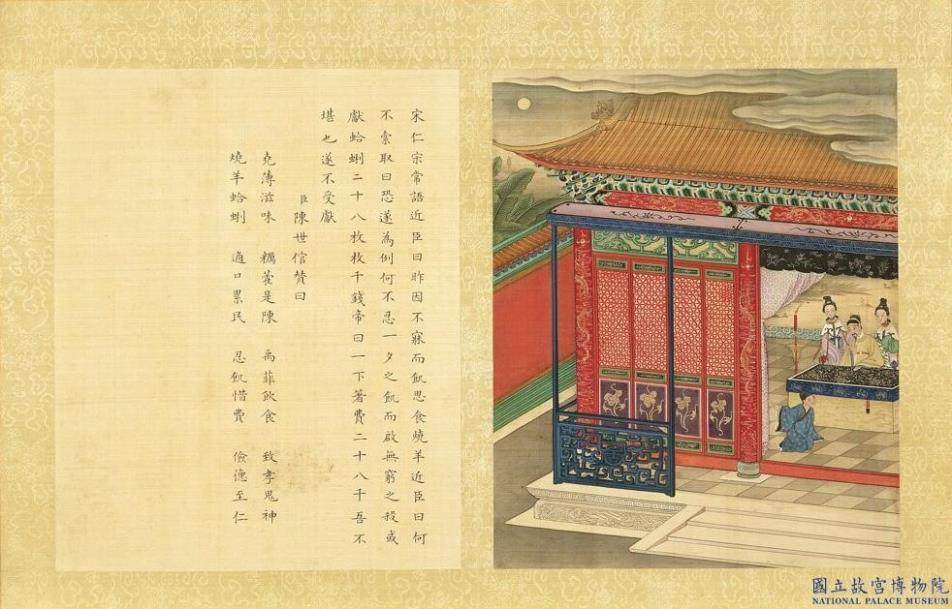 宋仁宗常語近臣曰昨因不寐而飢思食燒羊近臣曰何
不索取曰恐遂為例何不忍一夕之飢而啟無窮之殺或
獻蛤蜊二十八枚枚千錢帝曰一下著費二十八千吾不
堪也遂不受獻
臣陳世倌贊曰
堯薄滋味 糲藿是陳 禹菲飲食 致孝鬼神
燒羊蛤蜊 適口累民 忍飢惜費 儉德至仁
國立故宮博物院
NATIONAL PALACE MUSEUM